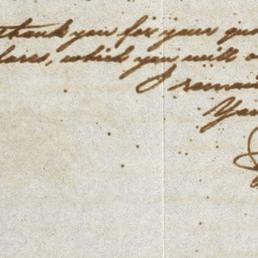 thank you for your
which you will
I remain
You